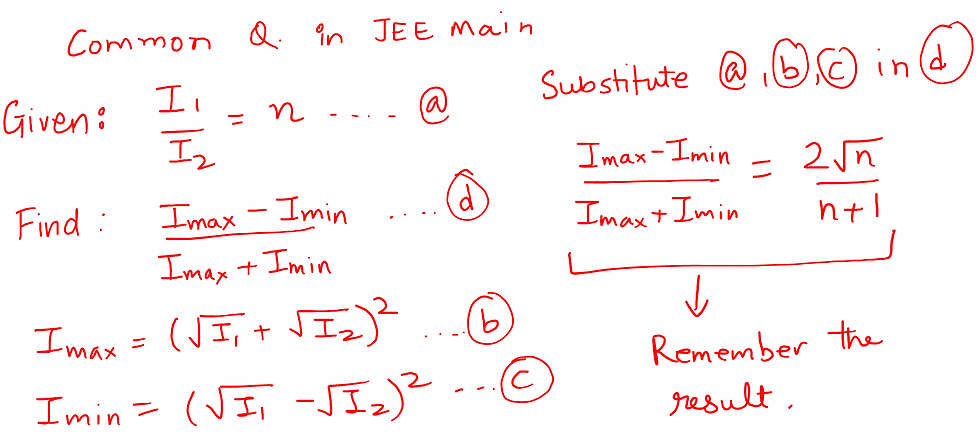 Common Q. in JEE Main
Given: I1/I2 = n ---- (a)
Find: (Imax - Imin)/(Imax + Imin) .... (d)
Imax = (√I1 + √I2)² ...(b)
Imin = (√I1 - √I2)² ---(c)
Substitute (a), (b), (c) in (d)
(Imax - Imin)/(Imax + Imin) = 2√n/(n+1)
Remember the
result.